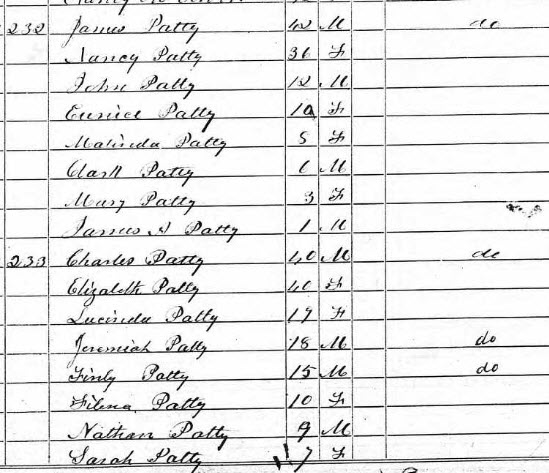 232 James Patty 42 M do
Nancy Patty 36 F
John Patty 12 M
Eunice Patty 10 F
Malinda Patty 5 F
Clark Patty 6 M
Mary Patty 3 F
James A Patty 1 M
233 Charles Patty 40 M do
Elizabeth Patty 40 F
Lucinda Patty 17 F
Jeremiah Patty 18 M do
Finly Patty 15 M do
Filena Patty 10 F
Nathan Patty 9 M
Sarah Patty 7 F